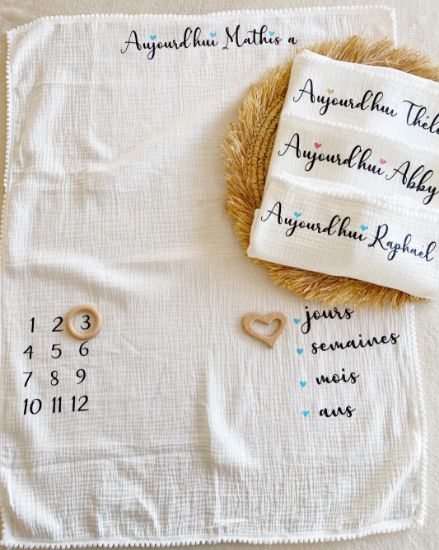 Aujourd'hui Mathis a
Aujourd'hui
Aujourd'hui Abby
Aujourd'hui Raphaël
1 2 3
4 5 6
7 8 9
10 11 12
jours
semaines
mois
ans